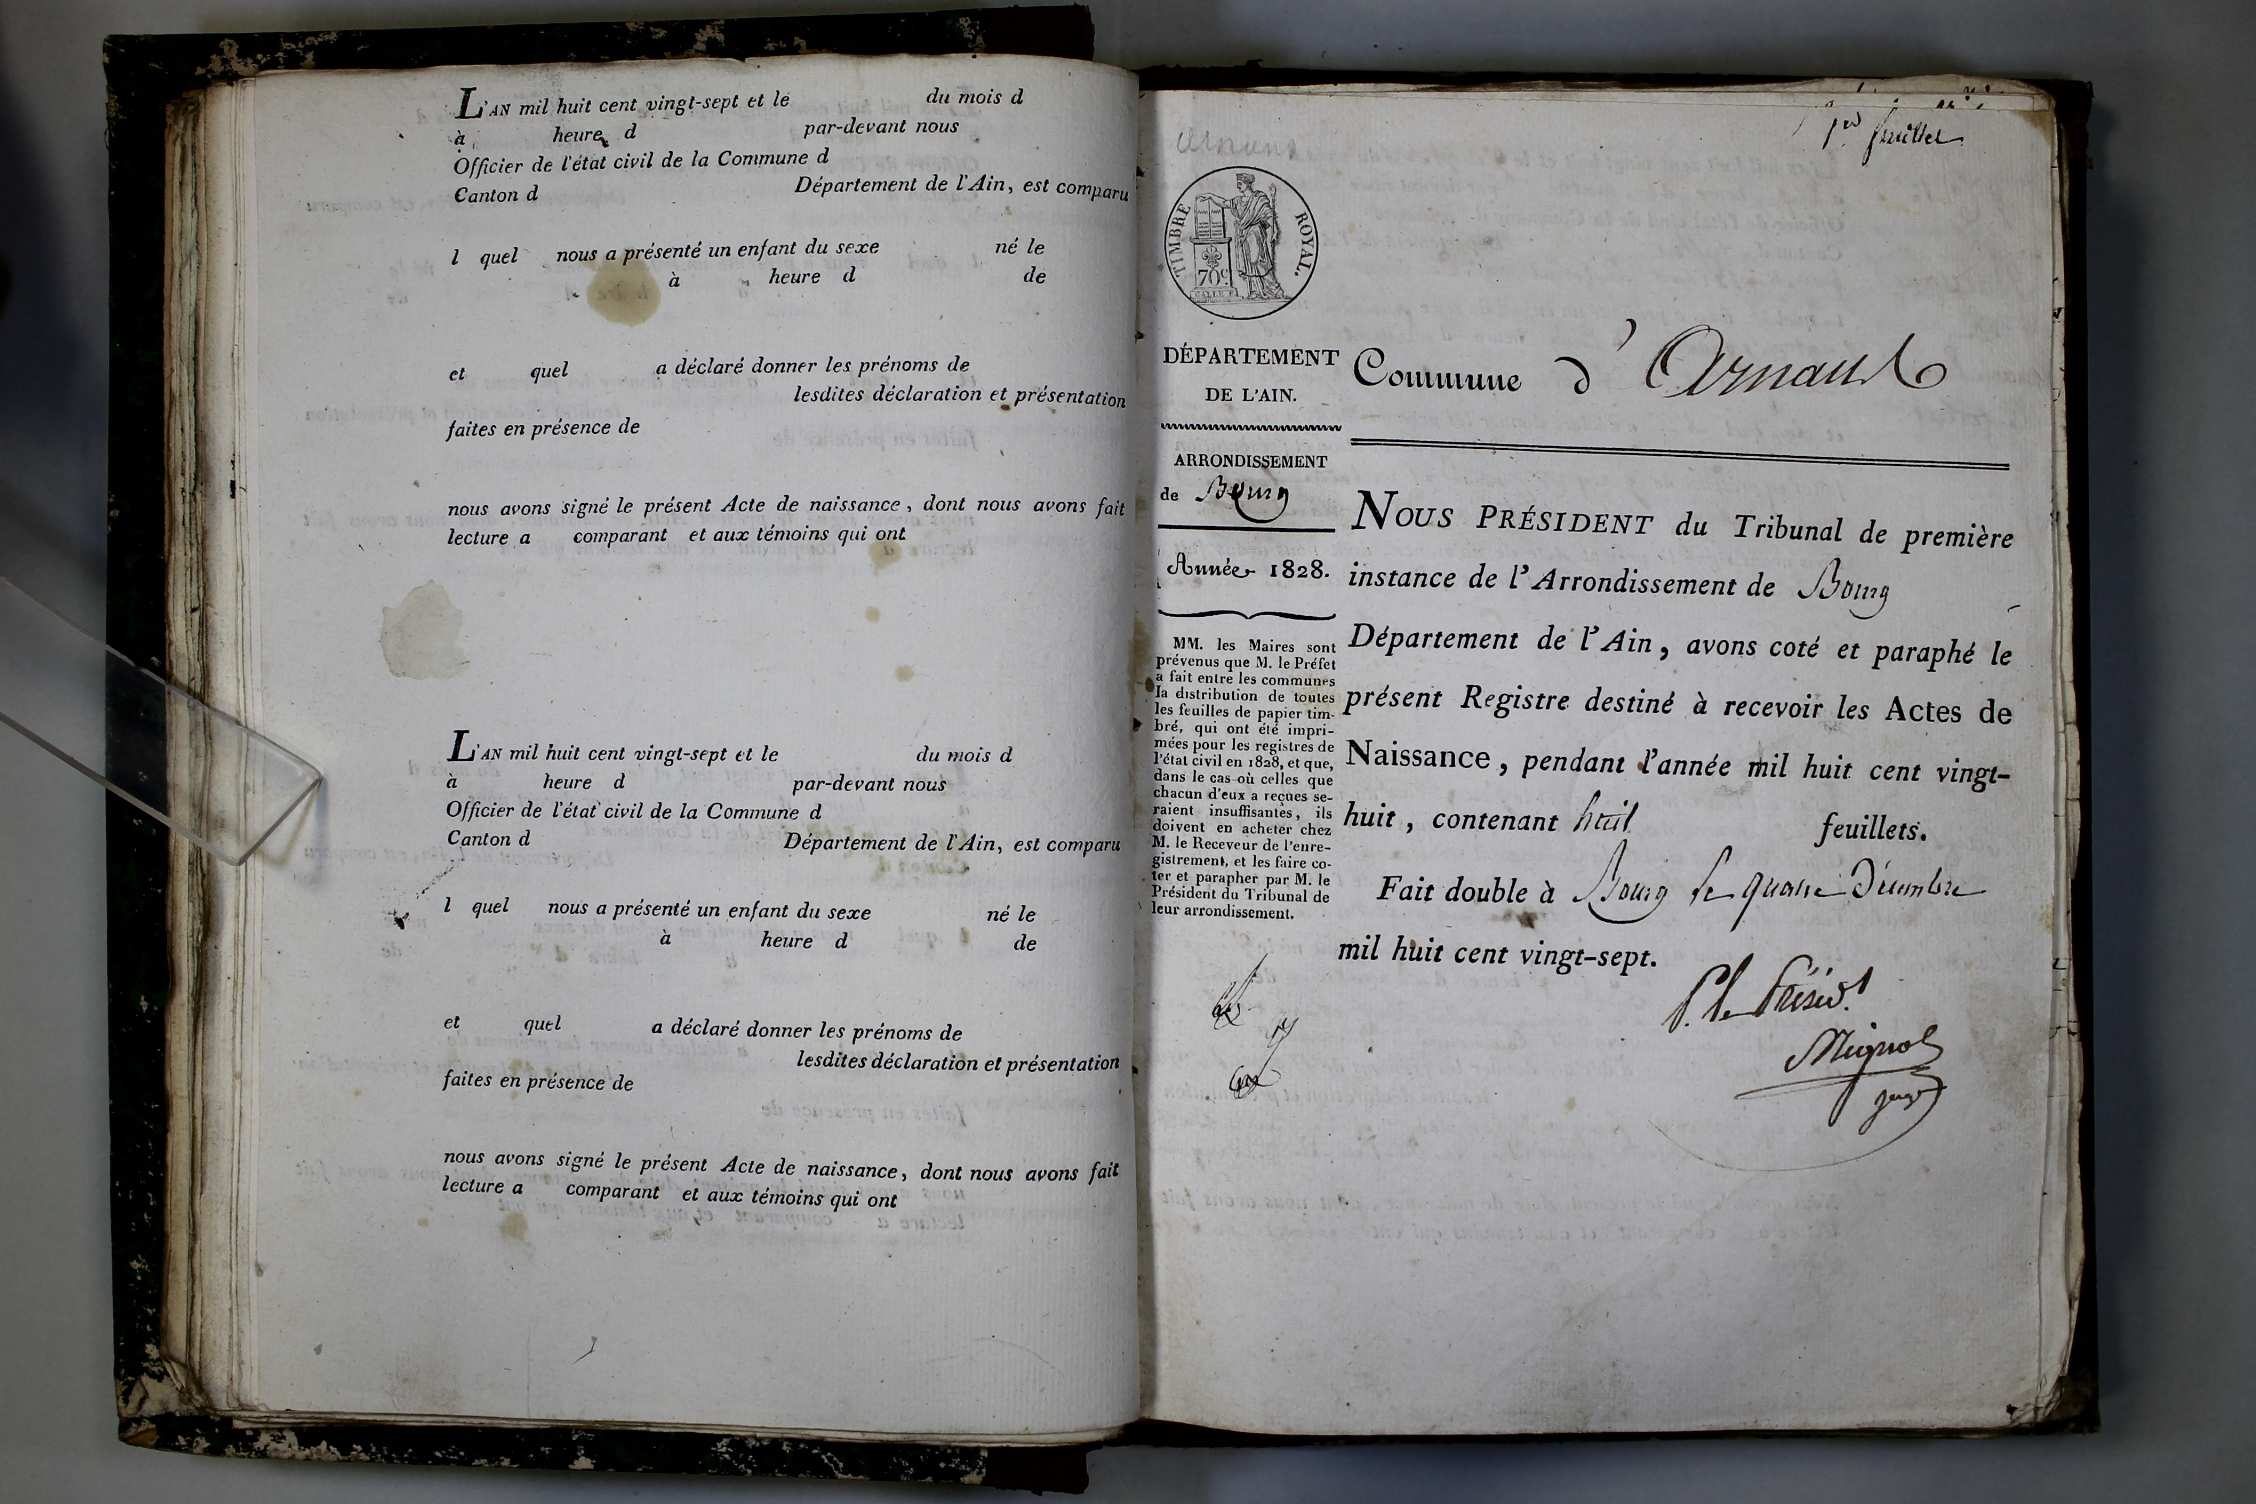 L'AN mil huit cent vingt-sept et le du mois d
à heure d par-devant nous
Officier de l'état civil de la Commune d
Canton d Département de l'Ain, est comparu
l quel nous a présenté un enfant du sexe né le
à heure d de
et quel a déclaré donner les prénoms de
lesdites déclaration et présentation
faites en présence de
nous avons signé le présent Acte de naissance, dont nous avons fait
lecture a comparant et aux témoins qui ont
L'AN mil huit cent vingt-sept et le du mois d
à heure d par-devant nous
Officier de l'état civil de la Commune d
Canton d Département de l'Ain, est comparu
l quel nous a présenté un enfant du sexe né le
à heure d de
et quel a déclaré donner les prénoms de
lesdites déclaration et présentation
faites en présence de
nous avons signé le présent Acte de naissance, dont nous avons fait
lecture a comparant et aux témoins qui ont
1er feuillet
TIMBRE ROYAL.
70c.
DÉPARTEMENT
DE L'AIN.
ARRONDISSEMENT
de Bourg
Année 1828.
MM. les Maires sont
prévenus que M. le Préfet
a fait entre les communes
la distribution de toutes
les feuilles de papier tim-
bré, qui ont été impri-
mées pour les registres de
l'état civil en 1828, et que,
dans le cas où celles que
chacun d'eux a reçues se-
raient insuffisantes, ils
doivent en acheter chez
M. le Receveur de l'enre-
gistrement, et les faire co-
ter et parapher par M. le
Président du Tribunal de
leur arrondissement.
Commune d' Arnans
NOUS PRÉSIDENT du Tribunal de première
instance de l'Arrondissement de Bourg
Département de l'Ain, avons coté et paraphé le
présent Registre destiné à recevoir les Actes de
Naissance, pendant l'année mil huit cent vingt-
huit, contenant huit feuillets.
Fait double à Bourg le quatre Décembre
mil huit cent vingt-sept.
P. le Présidt.
juge